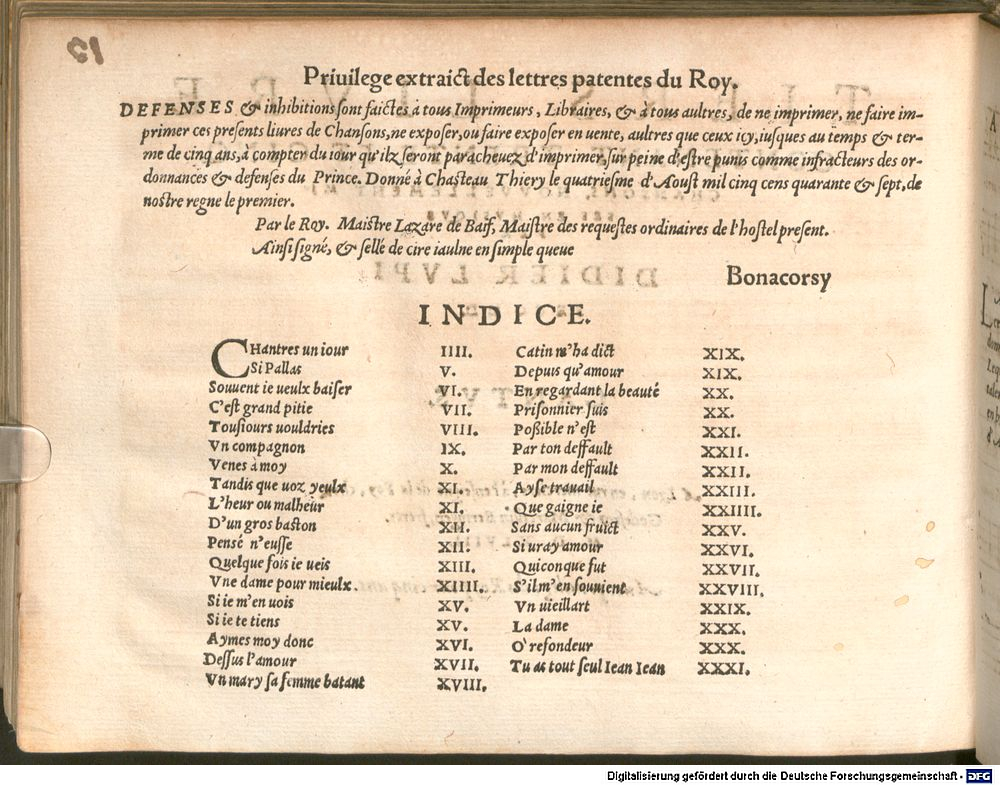 12
Priuilege extraict des lettres patentes du Roy.
DEFENSES & inhibitions sont faictes à tous Imprimeurs, Libraires, & à tous aultres, de ne imprimer, ne faire im-
primer ces presents liures de Chansons, ne exposer, ou faire exposer en uente, aultres que ceux icy, iusques au temps & ter-
me de cinq ans, à compter du iour qu'ilz seront paracheuez d'imprimer, sur peine d'estre punis comme infracteurs des or-
donnances & defenses du Prince. Donné à Chasteau Thiery le quatriesme d'Aoust mil cinq cens quarante & sept, de
nostre regne le premier.
Par le Roy. Maistre Lazare de Baif, Maistre des requestes ordinaires de l'hostel present.
Ainsi signé, & sellé de cire iaulne en simple queue
Bonacorsy
INDICE.
CHantres un iour IIII.
Si Pallas V.
Souuent ie ueulx baiser VI.
C'est grand pitie VII.
Tousiours uouldries VIII.
Vn compagnon IX.
Venes a moy X.
Tandis que uoz yeulx XI.
L'heur ou malheur XI.
D'un gros baston XII.
Pensé n'eusse XII.
Quelque fois ie ueis XIII.
Vne dame pour mieulx XIIII.
Si ie m'en uois XV.
Si ie te tiens XV.
Aymes moy donc XVI.
Dessus l'amour XVII.
Vn mary sa femme batant XVIII.
Catin m'ha dict XIX.
Depuis qu'amour XIX.
En regardant la beauté XX.
Prisonnier suis XX.
Possible n'est XXI.
Par ton deffault XXII.
Par mon deffault XXII.
Ayse trauail XXIII.
Que gaigne ie XXIIII.
Sans aucun fruict XXV.
Si uray amour XXVI.
Quiconque fut XXVII.
S'il m'en souuient XXVIII.
Vn uieillart XXIX.
La dame XXX.
O' refondeur XXX.
Tu as tout seul Iean Iean XXXI.
Digitalisierung gefördert durch die Deutsche Forschungsgemeinschaft - DFG